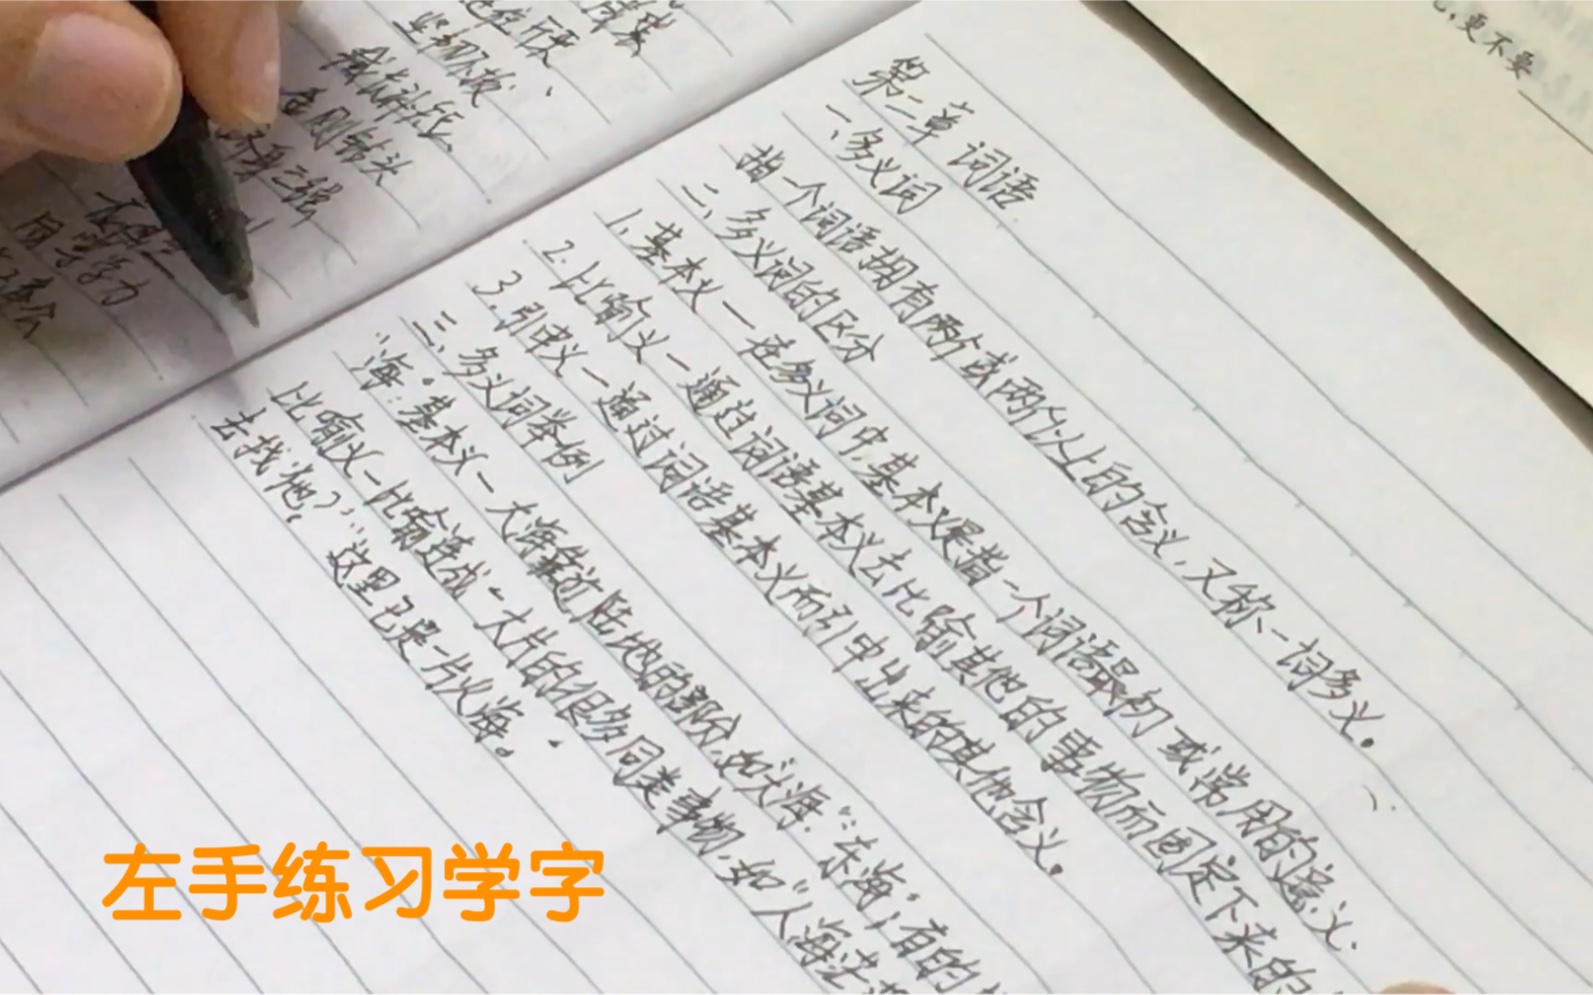 更不要
第二章 词语
一、多义词
指一个词语拥有两个或两个以上的含义，又称一词多义。
二、多义词的区分
1.基本义一在多义词中，基本义是指一个词语最初或常用的意义.
2.比喻义一通过词语基本义去比喻其他的事物而固定下来的
3.引申义一通过词语基本义而引申出来的其他含义。
三、多义词举例
"海":基本义一大海靠近陆地的部分，如"大海""东海"，有的
比喻义一比喻连成一大片的很多同类事物，如"人海
去找他?""这里已是一片火海。
金刚钻头
同学学力
左手练习学字